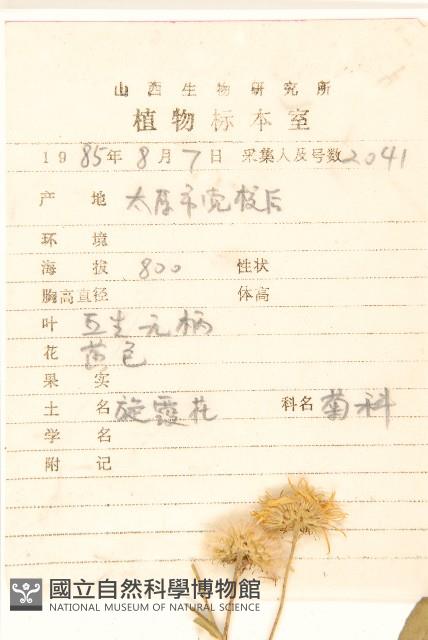 山西生物研究所
植物标本室
1985年8月7日 采集人及号数2041
产 地 太原市党校后
环 境
海 拔 800 性状
胸高直径 体高
叶 互生无柄
花 黄色
果 实
土 名 旋覆花 科名 菊科
学 名
附 记
國立自然科學博物館
NATIONAL MUSEUM OF NATURAL SCIENCE